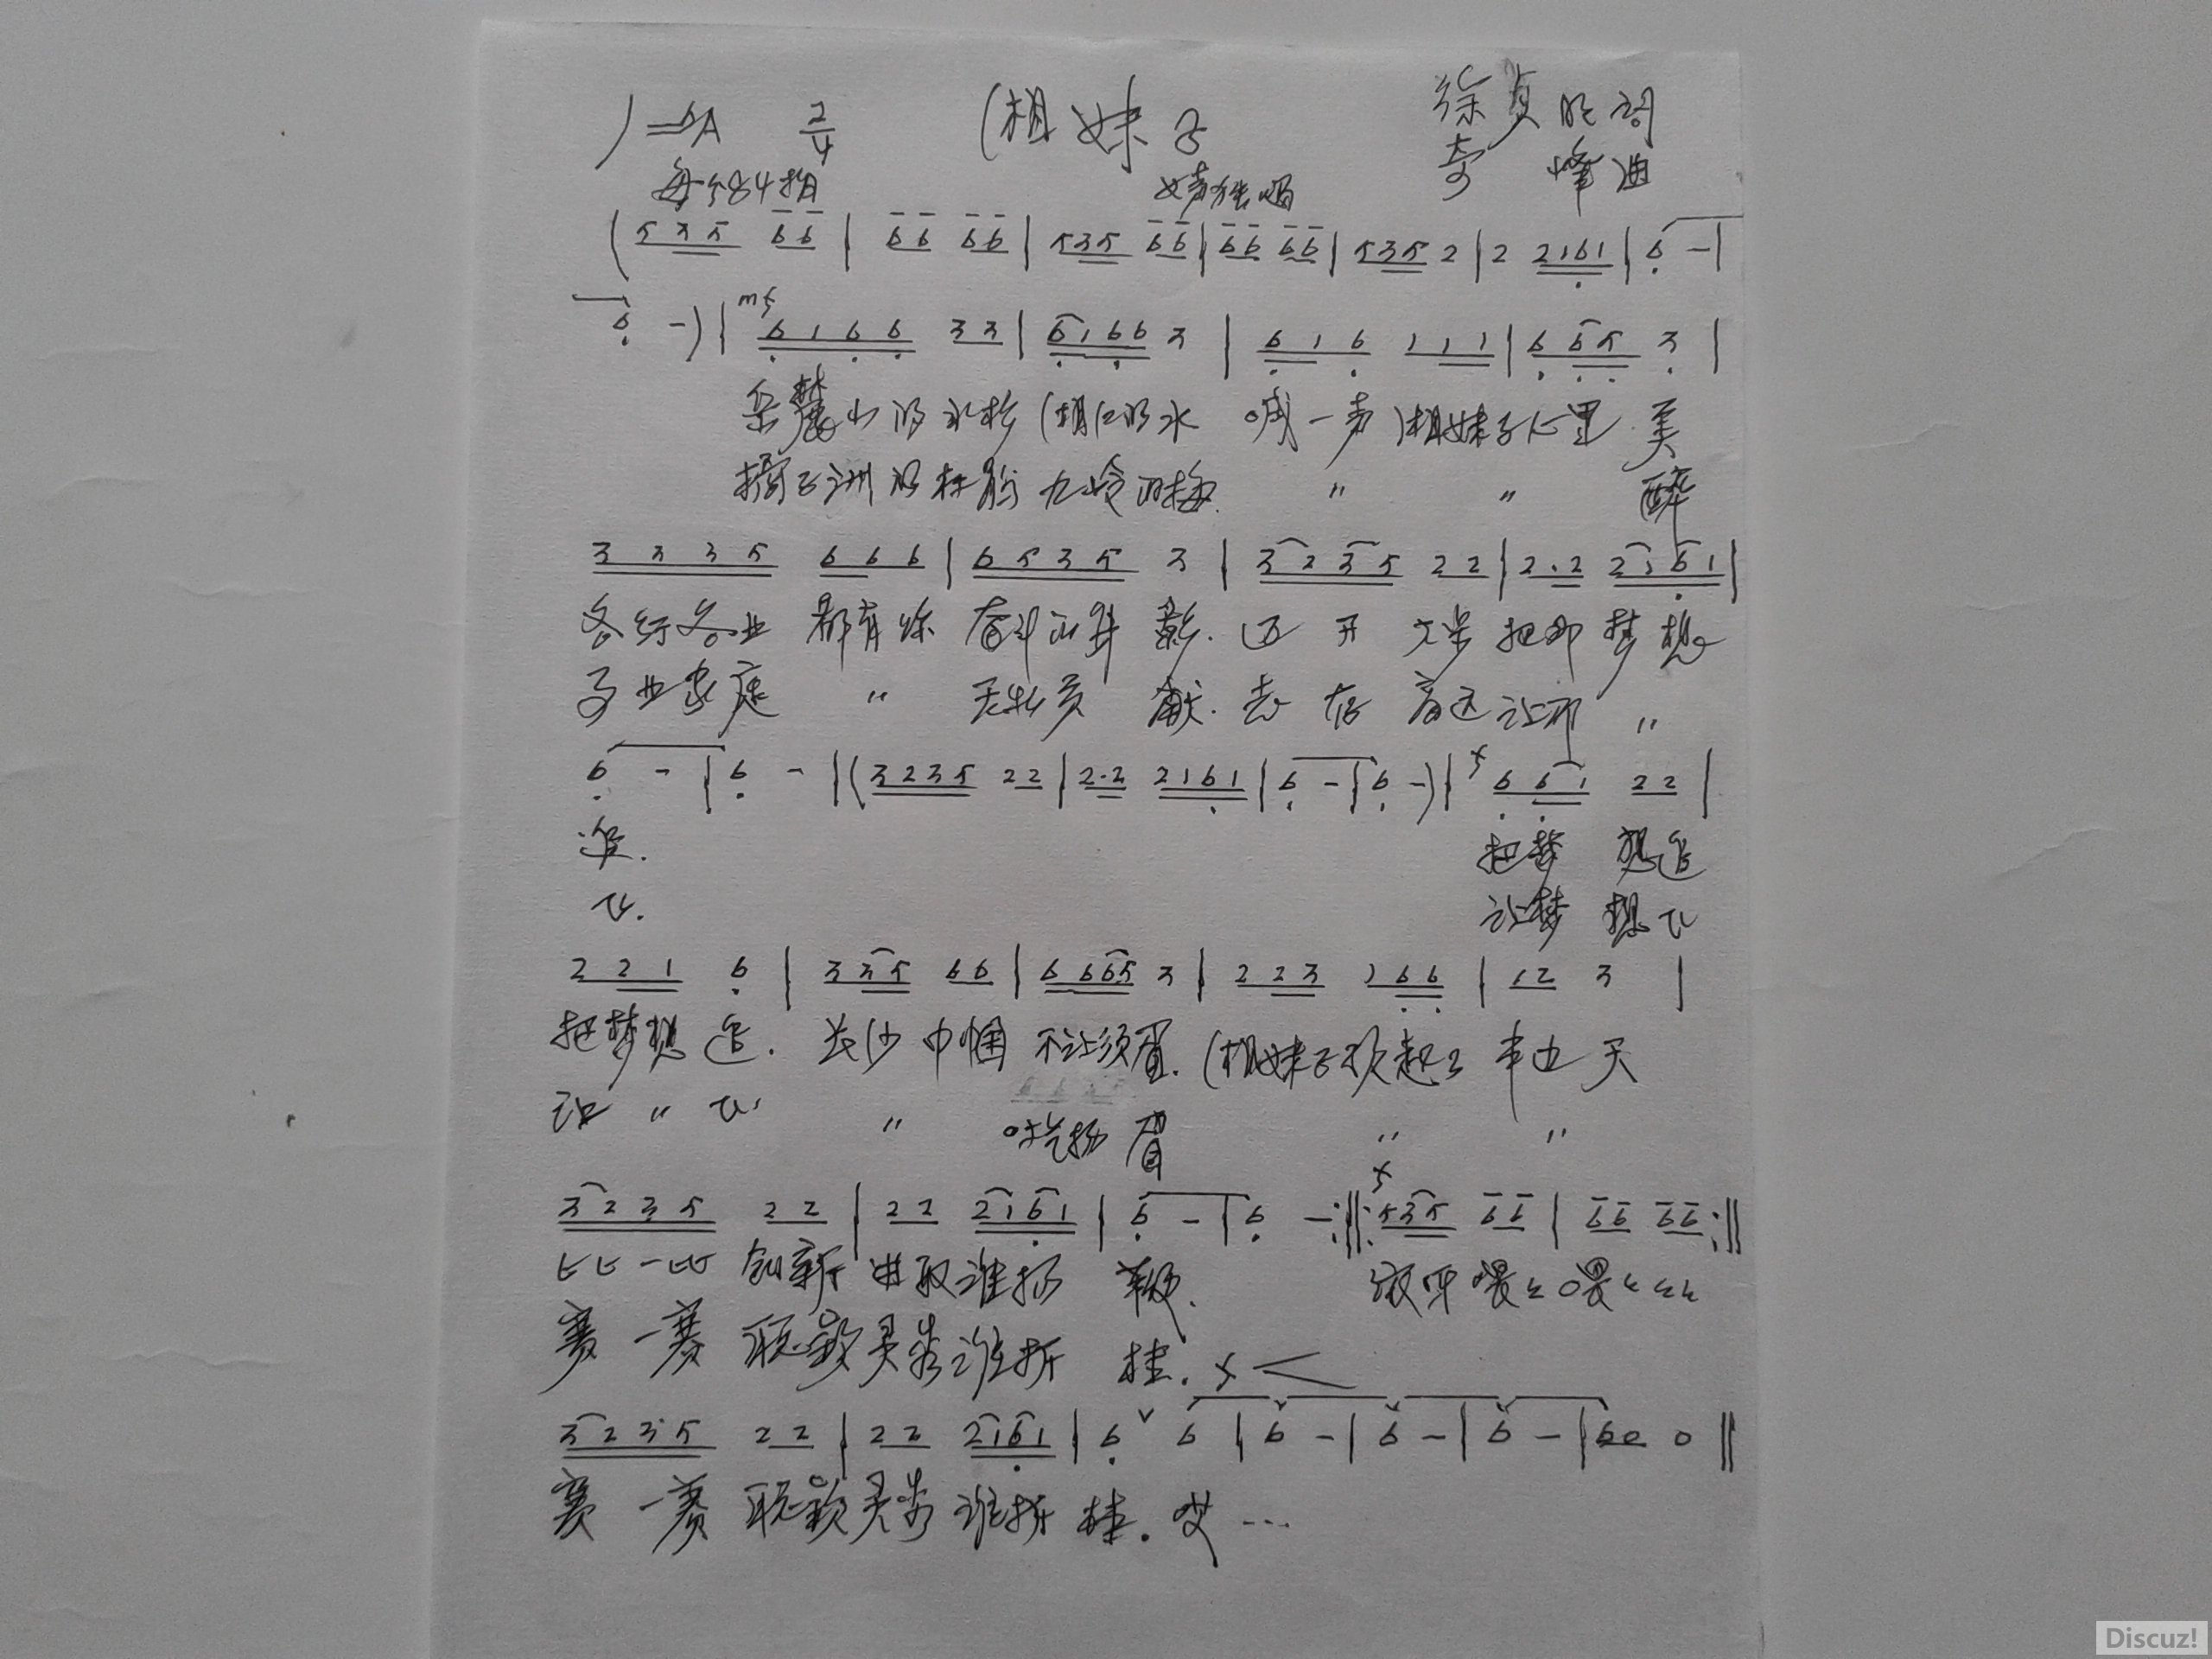 1=bA 2/4 湘妹子 徐贞 词
每分84拍 女声独唱 奇峰曲
(535 66 | 66 66 | 535 66 | 66 66 | 535 2 | 2 2161 | 6 - |
6 -) | mf 6166 33 | 6166 3 | 616 111 | 665 3 |
岳麓山的 湘江的水 喊一声湘妹子心里美
橘子洲 的梅 " " 醉
3335 666 | 6535 3 | 3235 22 | 2·2 2161 |
各行各业 都有你 奋斗的 影. 还 把那梦想
事业家庭 " 无私贡献. 志存高远让那 "
6 - | 6 - | (3235 22 | 2·2 2161 | 6 - | 6 -) | f 661 22 |
追. 把梦想追
飞. 让梦想飞
221 6 | 335 66 | 6665 3 | 223 166 | 12 3 |
把梦想追. 长沙巾帼 不让须眉. 湘妹子 起了半边天
让 " 飞 " 吐气扬眉 " "
3235 22 | 22 2161 | 6 - | 6 - :‖: f 535 66 | 66 66 :‖
比比一比 创新进取谁扬鞭.
赛一赛 聪颖灵秀谁折桂. f <
3235 22 | 22 2161 | 6 ∨ 6 | 6 - | 6 - | 6 - | 60 0 ‖
赛一赛 聪颖灵秀谁折桂. 哎…
Discuz!